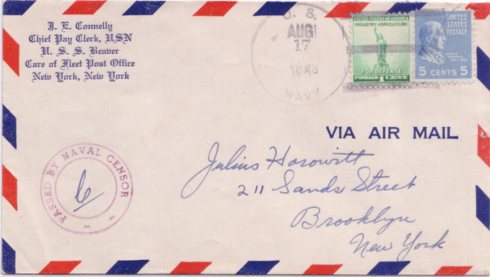 I. E. Connelly
Chief Pay Clerk, USN
U. S. S. Beaver
Care of Fleet Post Office
New York, New York
U. S.
AUG
17
1943
NAVY
UNITED STATES OF AMERICA
INDUSTRY AGRICULTURE
FOR DEFENSE
1 CENT
UNITED
STATES
POSTAGE
5 CENTS 5
VIA AIR MAIL
PASSED BY NAVAL CENSOR
6
Julius Horowitt
211 Sands Street
Brooklyn
New York